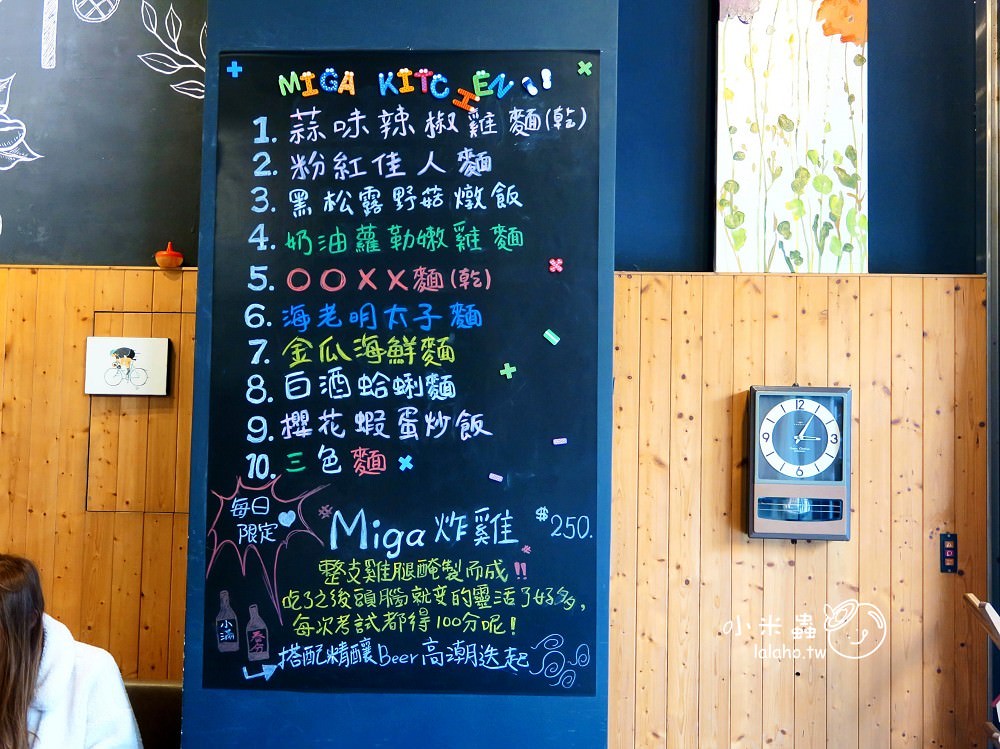 MIGA KITCHEN!!
1. 蒜味辣椒雞麵(乾)
2. 粉紅佳人麵
3. 黑松露野菇燉飯
4. 奶油蘿勒嫩雞麵
5. OOXX麵(乾)
6. 海老明太子麵
7. 金瓜海鮮麵
8. 白酒蛤蜊麵
9. 櫻花蝦蛋炒飯
10. 三色麵
每日
限定
Miga 炸雞 $250.
整支雞腿醃製而成!!
吃了之後頭腦就變的靈活了好多,
每次考試都得100分呢!
小滿
春分
搭配精釀Beer高潮迭起
12
3
6
9
小米蟲
lalaho.tw